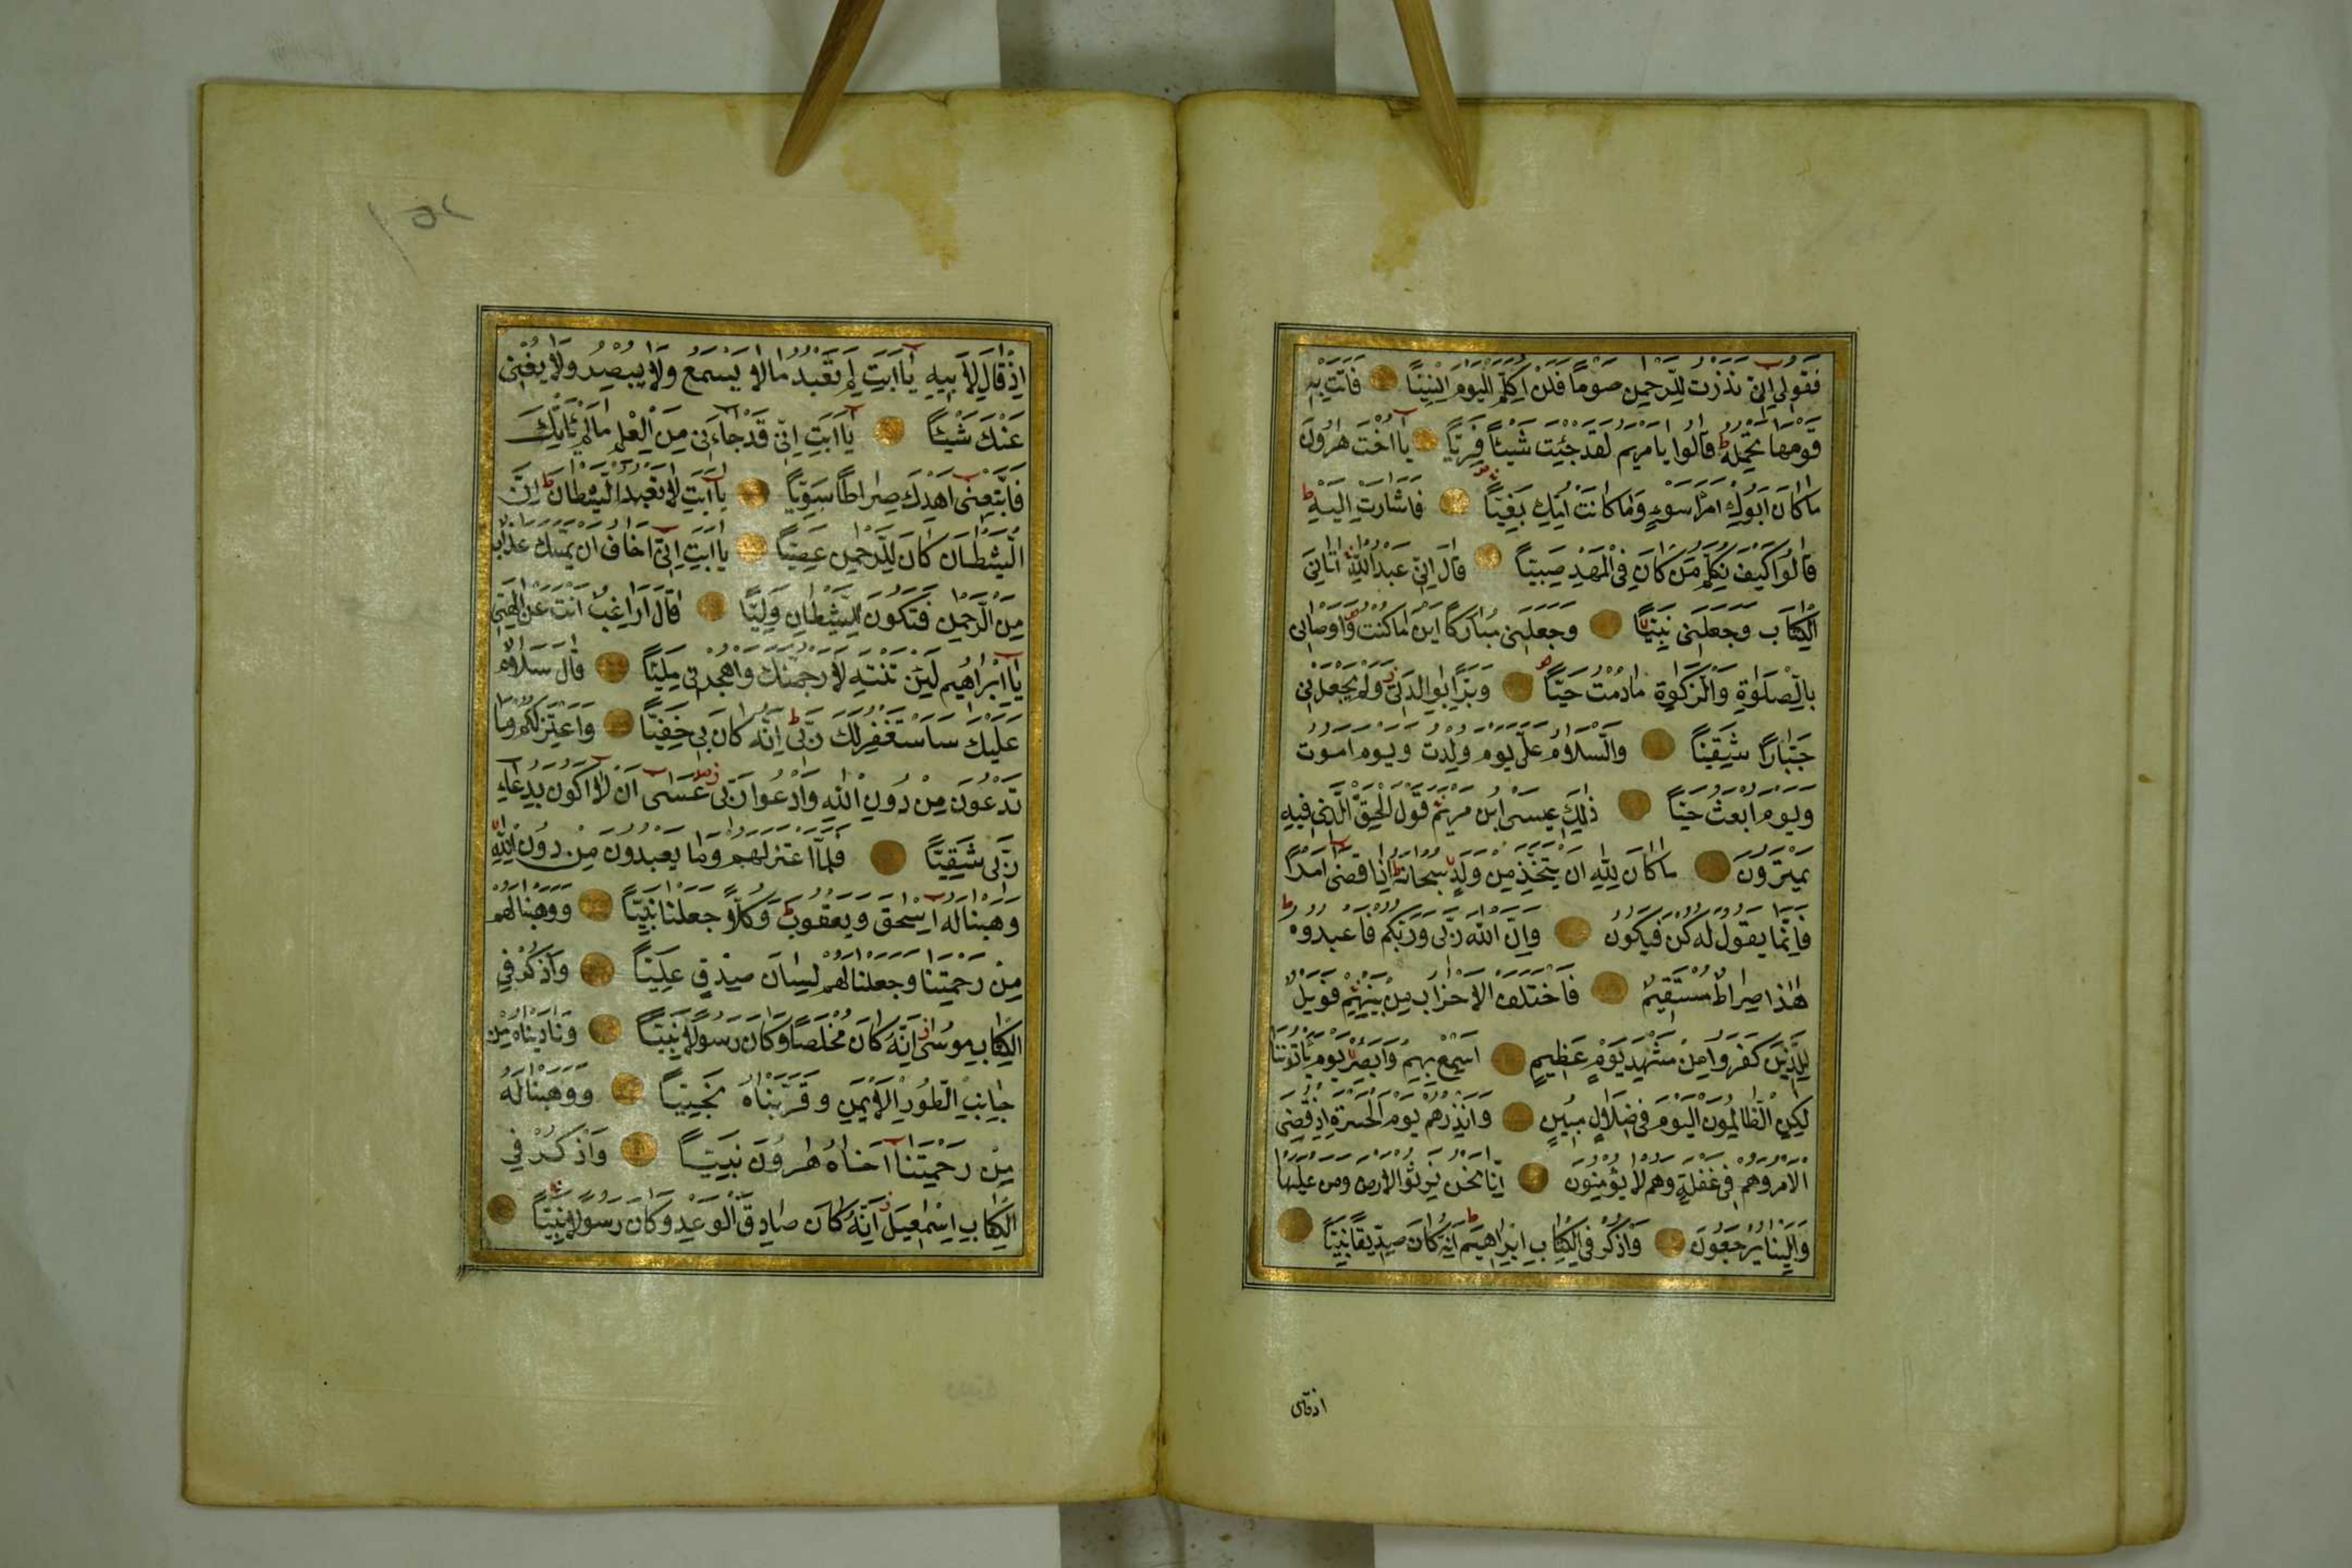 فَقُولِي اِنِّي نَذَرْتُ لِلرَّحْمٰنِ صَوْمًا فَلَنْ اُكَلِّمَ الْيَوْمَ اِنْسِيًّا فَاَتَتْ بِهِ
قَوْمَهَا تَحْمِلُهُ قَالُوا يَا مَرْيَمُ لَقَدْ جِئْتِ شَيْئًا فَرِيًّا يَا اُخْتَ هٰرُونَ
مَا كَانَ اَبُوكِ امْرَاَ سَوْءٍ وَمَا كَانَتْ اُمُّكِ بَغِيًّا فَاَشَارَتْ اِلَيْهِ
قَالُوا كَيْفَ نُكَلِّمُ مَنْ كَانَ فِي الْمَهْدِ صَبِيًّا قَالَ اِنِّي عَبْدُ اللّٰهِ اٰتَانِيَ
الْكِتَابَ وَجَعَلَنِي نَبِيًّا وَجَعَلَنِي مُبَارَكًا اَيْنَ مَا كُنْتُ وَاَوْصَانِي
بِالصَّلٰوةِ وَالزَّكٰوةِ مَا دُمْتُ حَيًّا وَبَرًّا بِوَالِدَتِي وَلَمْ يَجْعَلْنِي
جَبَّارًا شَقِيًّا وَالسَّلَامُ عَلَيَّ يَوْمَ وُلِدْتُ وَيَوْمَ اَمُوتُ
وَيَوْمَ اُبْعَثُ حَيًّا ذٰلِكَ عِيسَى ابْنُ مَرْيَمَ قَوْلَ الْحَقِّ الَّذِي فِيهِ
يَمْتَرُونَ مَا كَانَ لِلّٰهِ اَنْ يَتَّخِذَ مِنْ وَلَدٍ سُبْحَانَهُ اِذَا قَضٰى اَمْرًا
فَاِنَّمَا يَقُولُ لَهُ كُنْ فَيَكُونُ وَاِنَّ اللّٰهَ رَبِّي وَرَبُّكُمْ فَاعْبُدُوهُ
هٰذَا صِرَاطٌ مُسْتَقِيمٌ فَاخْتَلَفَ الْاَحْزَابُ مِنْ بَيْنِهِمْ فَوَيْلٌ
لِلَّذِينَ كَفَرُوا مِنْ مَشْهَدِ يَوْمٍ عَظِيمٍ اَسْمِعْ بِهِمْ وَاَبْصِرْ يَوْمَ يَاْتُونَنَا
لٰكِنِ الظَّالِمُونَ الْيَوْمَ فِي ضَلَالٍ مُبِينٍ وَاَنْذِرْهُمْ يَوْمَ الْحَسْرَةِ اِذْ قُضِيَ
الْاَمْرُ وَهُمْ فِي غَفْلَةٍ وَهُمْ لَا يُؤْمِنُونَ اِنَّا نَحْنُ نَرِثُ الْاَرْضَ وَمَنْ عَلَيْهَا
وَاِلَيْنَا يُرْجَعُونَ وَاذْكُرْ فِي الْكِتَابِ اِبْرٰاهِيمَ اِنَّهُ كَانَ صِدِّيقًا نَبِيًّا
اذ قال
١٥٢
اِذْ قَالَ لِاَبِيهِ يَا اَبَتِ لِمَ تَعْبُدُ مَا لَا يَسْمَعُ وَلَا يُبْصِرُ وَلَا يُغْنِي
عَنْكَ شَيْئًا يَا اَبَتِ اِنِّي قَدْ جَاءَنِي مِنَ الْعِلْمِ مَا لَمْ يَاْتِكَ
فَاتَّبِعْنِي اَهْدِكَ صِرَاطًا سَوِيًّا يَا اَبَتِ لَا تَعْبُدِ الشَّيْطَانَ اِنَّ
الشَّيْطَانَ كَانَ لِلرَّحْمٰنِ عَصِيًّا يَا اَبَتِ اِنِّي اَخَافُ اَنْ يَمَسَّكَ عَذَابٌ
مِنَ الرَّحْمٰنِ فَتَكُونَ لِلشَّيْطَانِ وَلِيًّا قَالَ اَرَاغِبٌ اَنْتَ عَنْ اٰلِهَتِي
يَا اِبْرٰاهِيمُ لَئِنْ لَمْ تَنْتَهِ لَاَرْجُمَنَّكَ وَاهْجُرْنِي مَلِيًّا قَالَ سَلَامٌ
عَلَيْكَ سَاَسْتَغْفِرُ لَكَ رَبِّي اِنَّهُ كَانَ بِي حَفِيًّا وَاَعْتَزِلُكُمْ وَمَا
تَدْعُونَ مِنْ دُونِ اللّٰهِ وَاَدْعُوا رَبِّي عَسٰى اَنْ لَا اَكُونَ بِدُعَاءِ
رَبِّي شَقِيًّا فَلَمَّا اعْتَزَلَهُمْ وَمَا يَعْبُدُونَ مِنْ دُونِ اللّٰهِ
وَهَبْنَا لَهُ اِسْحٰقَ وَيَعْقُوبَ وَكُلًّا جَعَلْنَا نَبِيًّا وَوَهَبْنَا لَهُمْ
مِنْ رَحْمَتِنَا وَجَعَلْنَا لَهُمْ لِسَانَ صِدْقٍ عَلِيًّا وَاذْكُرْ فِي
الْكِتَابِ مُوسٰى اِنَّهُ كَانَ مُخْلَصًا وَكَانَ رَسُولًا نَبِيًّا وَنَادَيْنَاهُ مِنْ
جَانِبِ الطُّورِ الْاَيْمَنِ وَقَرَّبْنَاهُ نَجِيًّا وَوَهَبْنَا لَهُ
مِنْ رَحْمَتِنَا اَخَاهُ هٰرُونَ نَبِيًّا وَاذْكُرْ فِي
الْكِتَابِ اِسْمٰعِيلَ اِنَّهُ كَانَ صَادِقَ الْوَعْدِ وَكَانَ رَسُولًا نَبِيًّا